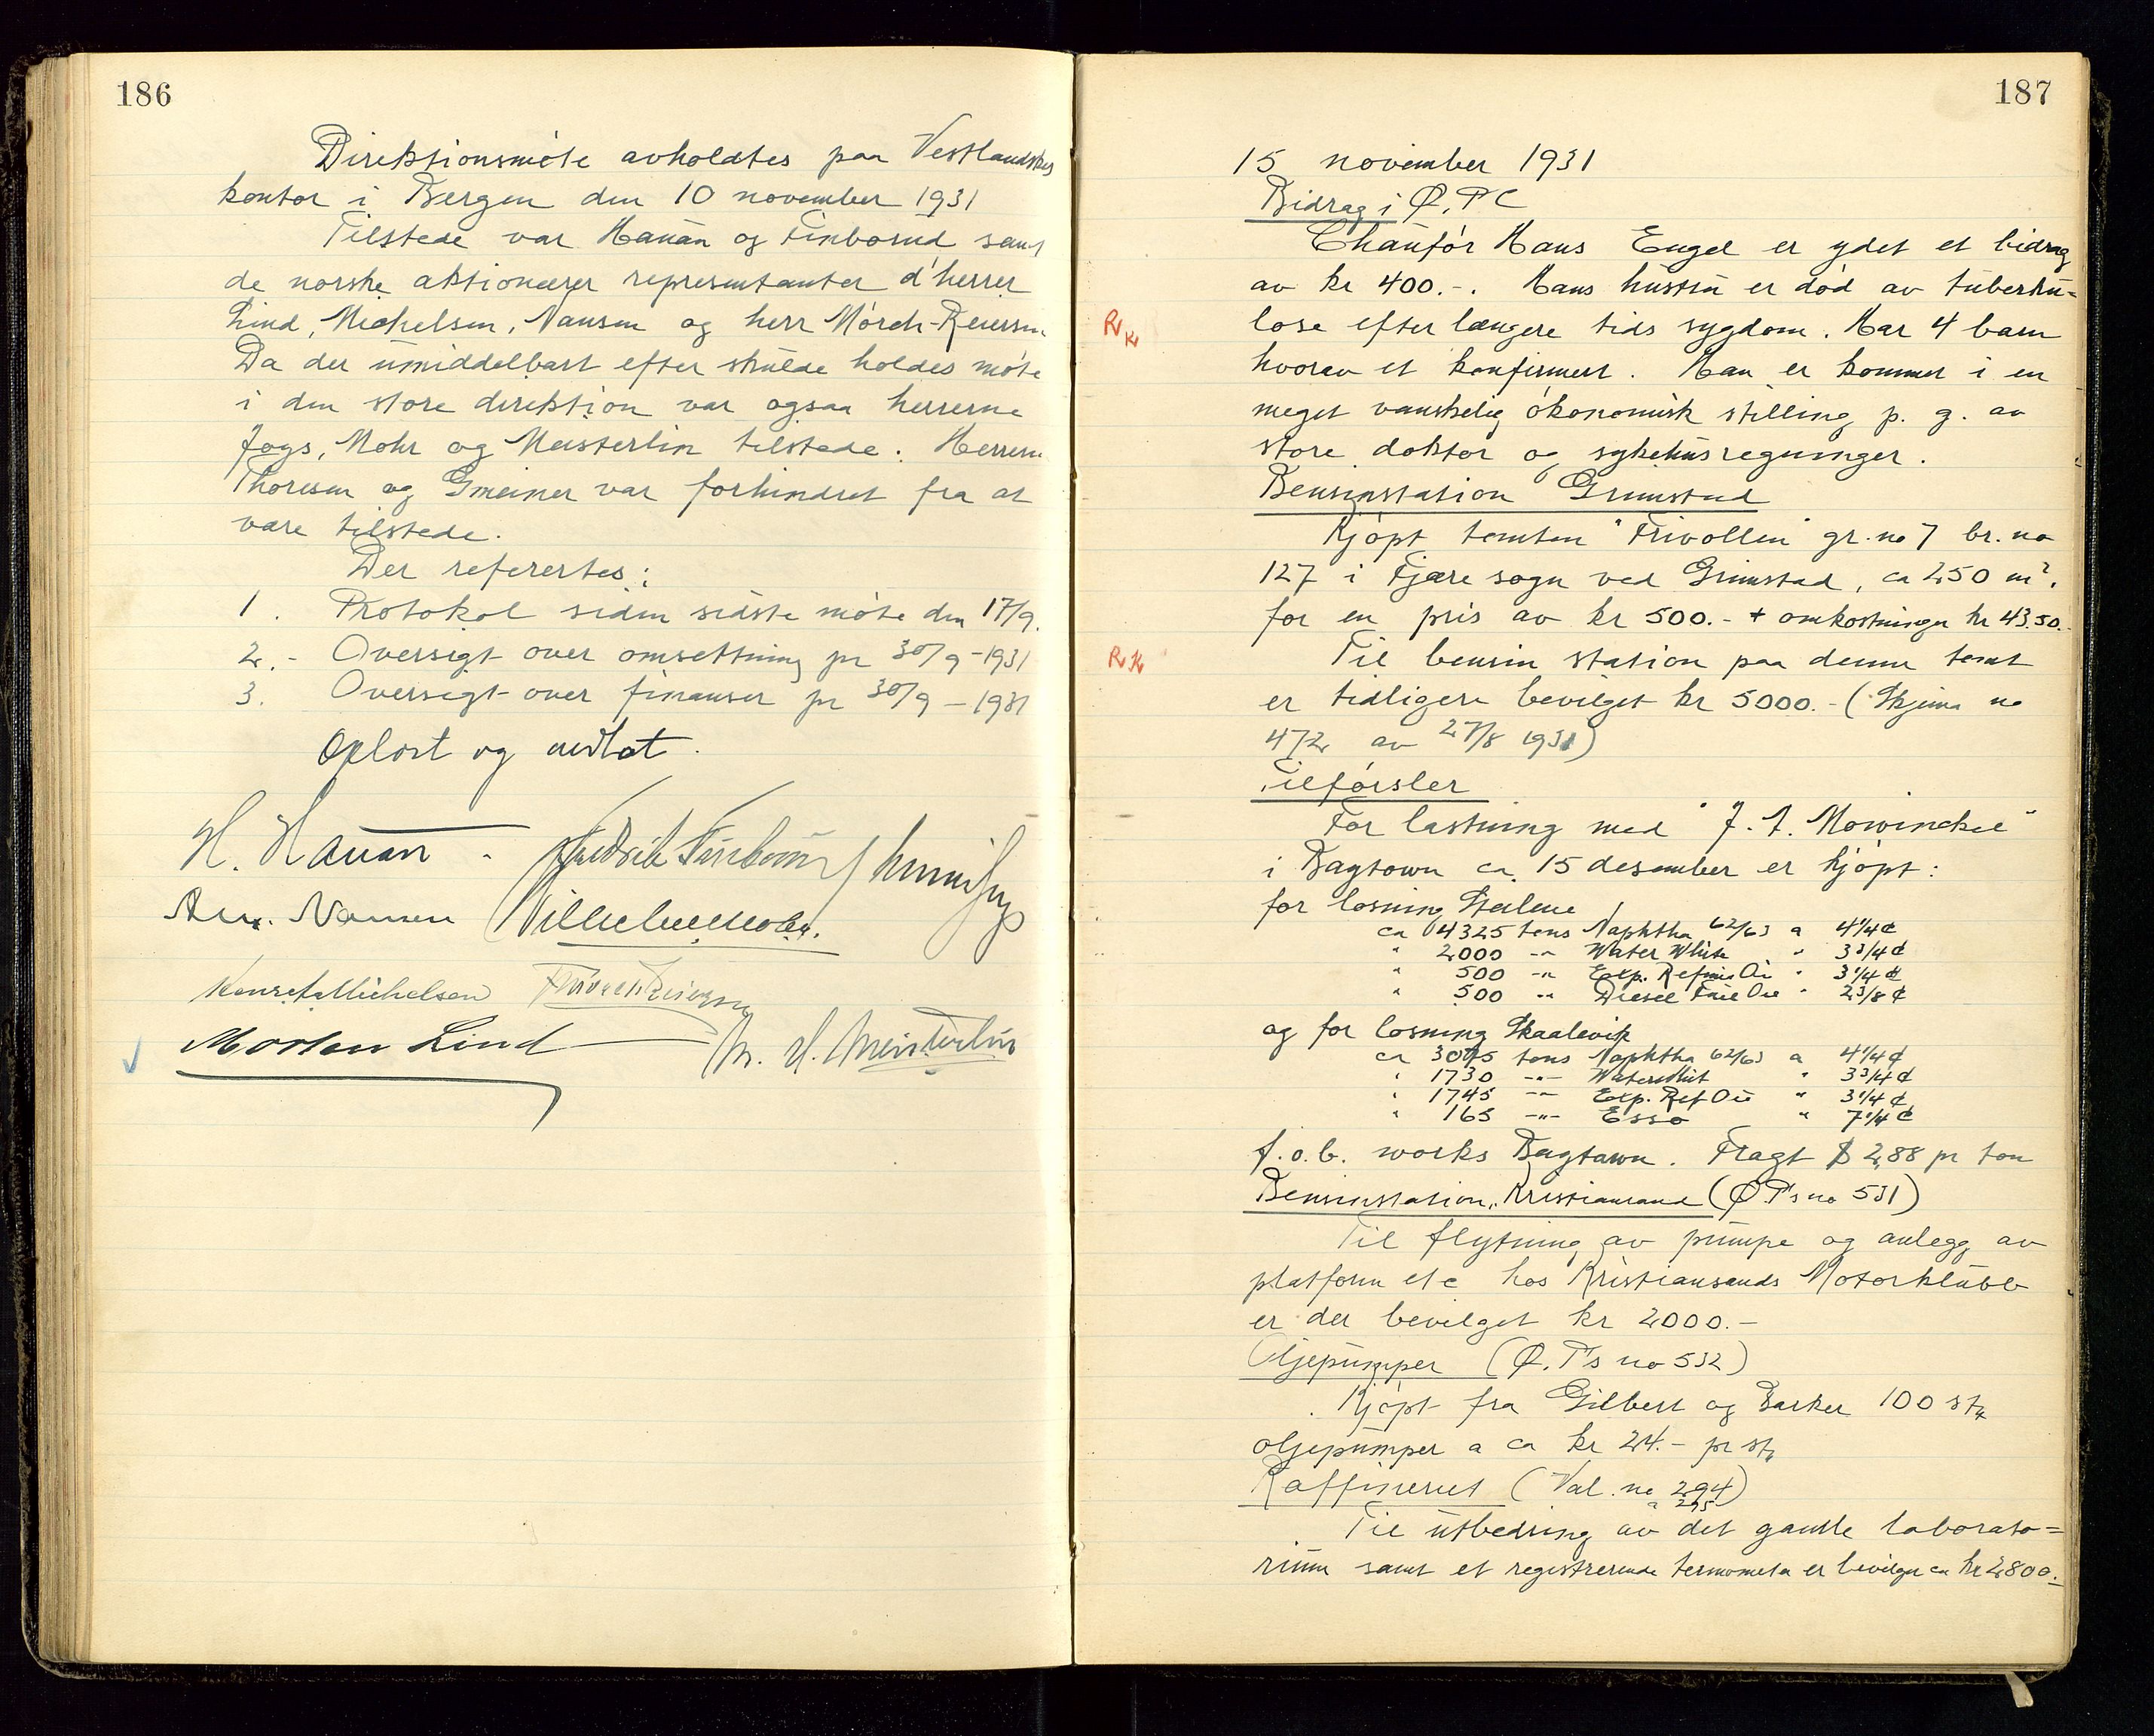 186
Direktionsmöte avholdtes paa Vestlandskes
kontor i Bergen den 10 november 1931
Tilstede var Hauan og Finborud samt
de norske aktionærer representanter d'herrer
Lind, Michelsen, Nansen og herr Mörch-Reiersen
Da der umiddelbart efter skulde holdes möte
i den store direktion var ogsaa herrerne
Foys, Mohr og Meisterlin tilstede. Herrerne
Thoresen og Gmeiner var forhindret fra at
være tilstede.
Der refertes:
1. Protokol siden sidste möte den 17/9.
2.- Oversigt over omsettning pr 30/9-1931
3. Oversigt over finanser pr 30/9-1931
Oplöst og vedtat.
H. Hauan. Fredrik Finborud
Nansen Vilhelm Mohr.
Michelsen Mörch Reiersen
Morten Lind H. Meisterlin
187
15 november 1931
Bidrag i Ø.P.C
Chauför Hans Engel er ydet et bidrag
av kr 400.-. Hans hustru er död av tuberku=
lose efter længere tids sygdom. Har 4 barn
hvorav et konfirmert. Han er kommet i en
Rk
meget vanskelig ökonomisk stilling p. g. av
store doktor og sykehusregninger.
Bensinstation Grimstad
Kjöpt tomten "Frivollen" gr. no 7 br. no
127 i Fjære sogn ved Grimstad, ca 250 m2.
for en pris av kr 500.- + omkostninger kr 43.50.-
Til bensin station paa denne tomt
Rk
er tidligere bevilget kr 5000.- (Skjema no
472 av 27/8 1931)
Tilförsler
For lastning med "J. A. Mowinckel"
i Baytown ca. 15 desember er kjöpt:
for losning Steilene
ca 4325 tons Naphtha 62/63 a 4 1/4 ¢
" 2000 -"- Water White " 3 3/4 ¢
" 500 -"- Exp. Refined Oil " 3 1/4 ¢
" 500 -"- Diesel Fuel Oil " 2 3/8 ¢
og for losning Skaalevik
ca 3075 tons Naphtha 62/63 a 4 1/4 ¢
" 1730 -"- Waterwhit " 3 3/4 ¢
" 1745 -"- Exp. Ref Oil " 3 1/4 ¢
" 165 -"- Esso " 7 1/4 ¢
f.o.b. works Baytown. Fragt $ 2,88 pr ton
Bensinstation, Kristiansand (Ø.P's no 531)
Til flytning av pumpe og anlegg av
platform etc hos Kristiansands Motorklubb
er der bevilget kr 2000.-
Oljepumper (Ø.P's no 532)
Kjöpt fra Gilbert og Barker 100 stk
oljepumper a ca kr 24.- pr stk
Raffineriet (Val. no 294)
" 295
Til utbedring av det gamle laborato=
rium samt et registrerende termometer er bevilget ca kr 2800.-